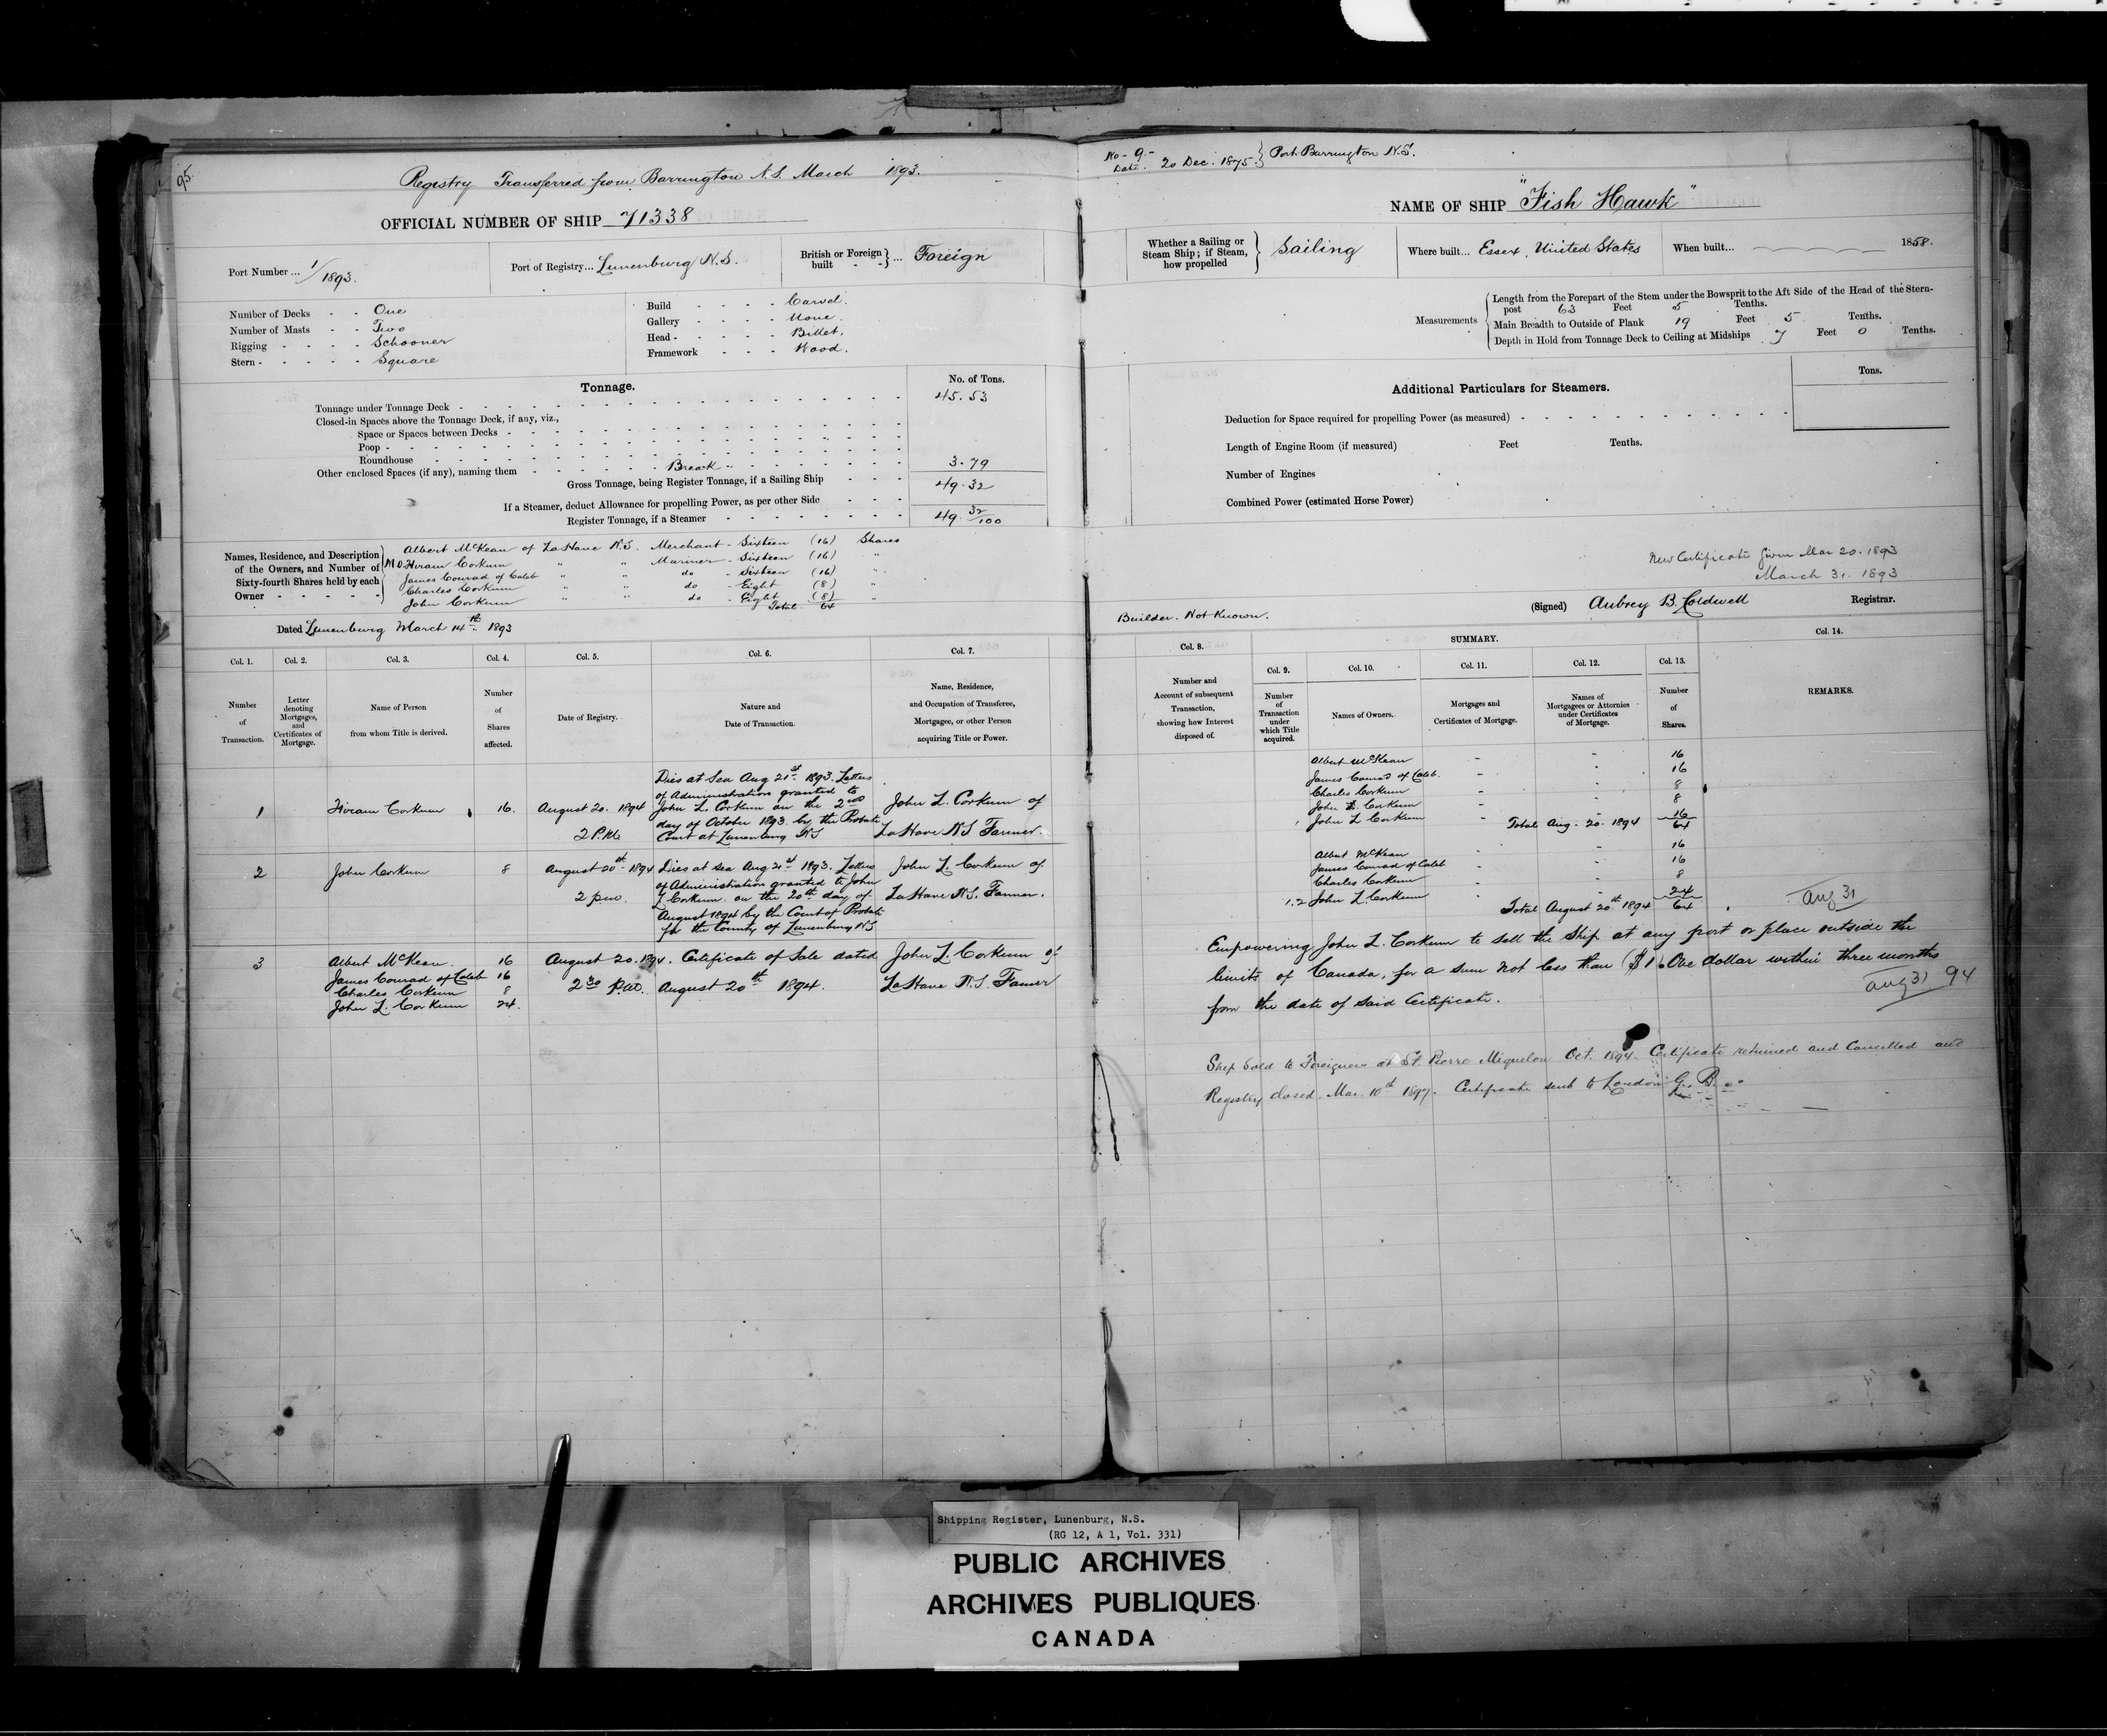 95
Registry Transferred from Barrington N.S. March 1893.
OFFICIAL NUMBER OF SHIP 71338
Port Number ... 1/1893.
Port of Registry... Lunenburg N.S.
British or Foreign built - - } ... Foreign
Number of Decks - - One
Number of Masts - - Two
Rigging - - - - Schooner
Stern - - - - - Square
Build - - - - Carvel.
Gallery - - - - None.
Head - - - - - Billet.
Framework - - - Wood.
Tonnage.
No. of Tons.
Tonnage under Tonnage Deck - 45.53
Closed-in Spaces above the Tonnage Deck, if any, viz.,
Space or Spaces between Decks -
Poop -
Roundhouse -
Other enclosed Spaces (if any), naming them - Break - 3.79
Gross Tonnage, being Register Tonnage, if a Sailing Ship - - - 49.32
If a Steamer, deduct Allowance for propelling Power, as per other Side - - -
Register Tonnage, if a Steamer - 49. 32/100
Names, Residence, and Description of the Owners, and Number of Sixty-fourth Shares held by each Owner - - - - -
Albert McKean of LaHave N.S. Merchant - Sixteen (16) Shares
Hiram Corkum " " Mariner - Sixteen (16) "
James Conrad of Caleb " " do - Sixteen (16) "
Charles Corkum " " do - Eight (8) "
John Corkum " " do - Eight (8) "
Total 64
Dated Lunenburg March 14th 1893
Col. 1. Col. 2. Col. 3. Col. 4. Col. 5. Col. 6. Col. 7.
Number of Transaction.
Letter denoting Mortgages, and Certificates of Mortgage.
Name of Person from whom Title is derived.
Number of Shares affected.
Date of Registry.
Nature and Date of Transaction.
Name, Residence, and Occupation of Transferee, Mortgagee, or other Person acquiring Title or Power.
1 Hiram Corkum 16. August 20. 1894 2 P.M.
Dies at Sea Aug 21st 1893. Letters
of Administration granted to
John L. Corkum on the 2nd
day of October 1893 by the Probate
Court at Lunenburg NS
John L. Corkum of
LaHave N.S Farmer.
2 John Corkum 8 August 20th 1894 2 p.m.
Dies at sea Aug 21st 1893. Letters
of Administration granted to John
L Corkum on the 20th day of
August 1894 by the Court of Probate
for the County of Lunenburg NS
John L. Corkum of
LaHave N.S. Farmer.
3 Albert McKean. 16
James Conrad of Caleb 16
Charles Corkum 8
John L. Corkum 24.
August 20. 1894. 2 30 p.m.
Certificate of Sale dated
August 20th 1894.
John L. Corkum of
LaHave N.S. Farmer
No - 9. -
Date. 20 Dec. 1875. } Port Barrington N.S.
NAME OF SHIP "Fish Hawk"
Whether a Sailing or Steam Ship; if Steam, how propelled } Sailing
Where built... Essex, United States
When built... 1858.
Measurements
Length from the Forepart of the Stem under the Bowsprit to the Aft Side of the Head of the Stern-
post 63 Feet 5 Tenths.
Main Breadth to Outside of Plank 19 Feet 5 Tenths.
Depth in Hold from Tonnage Deck to Ceiling at Midships 7 Feet 0 Tenths.
Additional Particulars for Steamers.
Tons.
Deduction for Space required for propelling Power (as measured) -
Length of Engine Room (if measured) Feet Tenths.
Number of Engines
Combined Power (estimated Horse Power)
New Certificate Given Mar 20. 1893
March 31. 1893
(Signed) Aubrey B. Coldwell Registrar.
Builder. Not Known.
Col. 8. SUMMARY. Col. 14.
Col. 9. Col. 10. Col. 11. Col. 12. Col. 13.
Number and Account of subsequent Transaction, showing how Interest disposed of.
Number of Transaction under which Title acquired.
Names of Owners.
Mortgages and Certificates of Mortgage.
Names of Mortgagees or Attornies under Certificates of Mortgage.
Number of Shares.
REMARKS.
Albert McKean - - 16
James Conrad of Caleb. - - 16
Charles Corkum - - 8
John Corkum - - 8
1 John L Corkum - 16
Total Aug. 20. 1894 64
Albert McKean - - 16
James Conrad of Caleb - - 16
Charles Corkum - - 8
1.2 John L Corkum - - 24
Total August 20th 1894 64
Aug 31
Empowering John L. Corkum to sell the Ship at any port or place outside the
limits of Canada, for a sum not less than ($1) One dollar within three months
from the date of said Certificate.
Aug 31 94
Ship Sold to Foreigners at St. Pierre Miquelon Oct. 1894. Certificate returned and Cancelled and
Registry closed. Mar. 10th 1897. Certificate sent to London G. B.
Shipping Register, Lunenburg, N.S.
(RG 12, A 1, Vol. 331)
PUBLIC ARCHIVES
ARCHIVES PUBLIQUES
CANADA